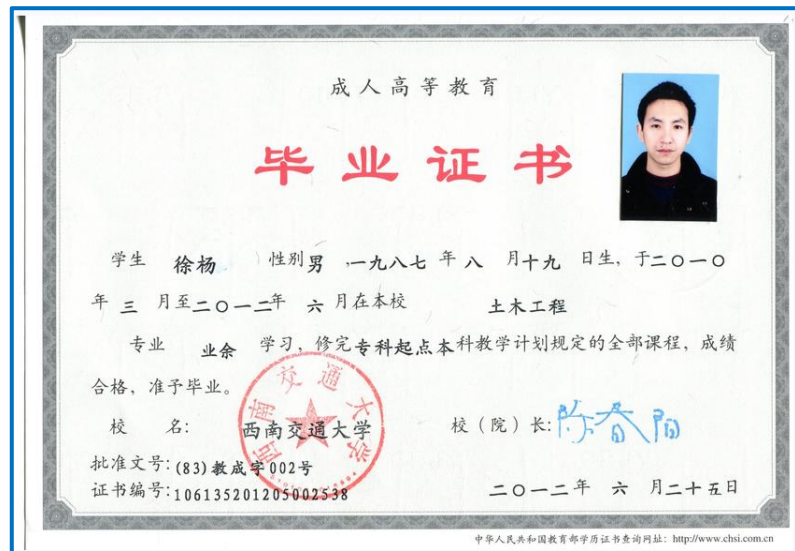 成人高等教育
毕业证书
学生 徐杨 性别男,一九八七年八月十九日生,于二〇一〇
年三月至二〇一二年六月在本校 土木工程
专业 业余 学习,修完专科起点本科教学计划规定的全部课程,成绩
合格,准予毕业。
校 名: 西南交通大学 校(院)长:陈春阳
批准文号:(83)教成字002号
证书编号:106135201205002538 二〇一二年六月二十五日
西南交通大学
中华人民共和国教育部学历证书查询网址:http://www.chsi.com.cn